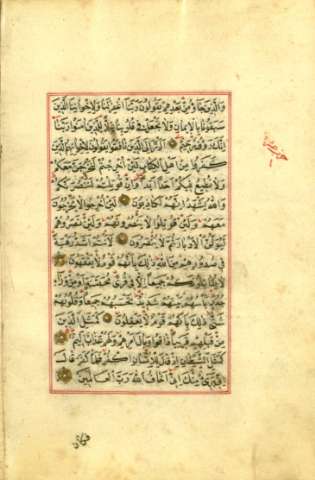 وَالَّذِينَ جَاؤُ مِنْ بَعْدِهِمْ يَقُولُونَ رَبَّنَا اغْفِرْ لَنَا وَلِاِخْوَانِنَا الَّذِينَ
سَبَقُونَا بِالْاِيمَانِ وَلَا تَجْعَلْ فِي قُلُوبِنَا غِلًّا لِلَّذِينَ اٰمَنُوا رَبَّنَا
اِنَّكَ رَؤُفٌ رَحِيمٌ اَلَمْ تَرَ اِلَى الَّذِينَ نَافَقُوا يَقُولُونَ لِاِخْوَانِهِمُ الَّذِينَ
كَفَرُوا مِنْ اَهْلِ الْكِتَابِ لَئِنْ اُخْرِجْتُمْ لَنَخْرُجَنَّ مَعَكُمْ
وَلَا نُطِيعُ فِيكُمْ اَحَدًا اَبَدًا وَاِنْ قُوتِلْتُمْ لَنَنْصُرَنَّكُمْ
وَاللّٰهُ يَشْهَدُ اِنَّهُمْ لَكَاذِبُونَ لَئِنْ اُخْرِجُوا لَا يَخْرُجُونَ
مَعَهُمْ وَلَئِنْ قُوتِلُوا لَا يَنْصُرُونَهُمْ وَلَئِنْ نَصَرُوهُمْ
لَيُوَلُّنَّ الْاَدْبَارَ ثُمَّ لَا يُنْصَرُونَ لَاَنْتُمْ اَشَدُّ رَهْبَةً
فِي صُدُورِهِمْ مِنَ اللّٰهِ ذٰلِكَ بِاَنَّهُمْ قَوْمٌ لَا يَفْقَهُونَ
لَا يُقَاتِلُونَكُمْ جَمِيعًا اِلَّا فِي قُرًى مُحَصَّنَةٍ اَوْ مِنْ وَرَاءِ
جُدُرٍ بَاْسُهُمْ بَيْنَهُمْ شَدِيدٌ تَحْسَبُهُمْ جَمِيعًا وَقُلُوبُهُمْ
شَتّٰى ذٰلِكَ بِاَنَّهُمْ قَوْمٌ لَا يَعْقِلُونَ كَمَثَلِ الَّذِينَ
مِنْ قَبْلِهِمْ قَرِيبًا ذَاقُوا وَبَالَ اَمْرِهِمْ وَلَهُمْ عَذَابٌ اَلِيمٌ
كَمَثَلِ الشَّيْطَانِ اِذْ قَالَ لِلْاِنْسَانِ اكْفُرْ فَلَمَّا كَفَرَ قَالَ
اِنِّي بَرِيءٌ مِنْكَ اِنِّي اَخَافُ اللّٰهَ رَبَّ الْعَالَمِينَ
فكان